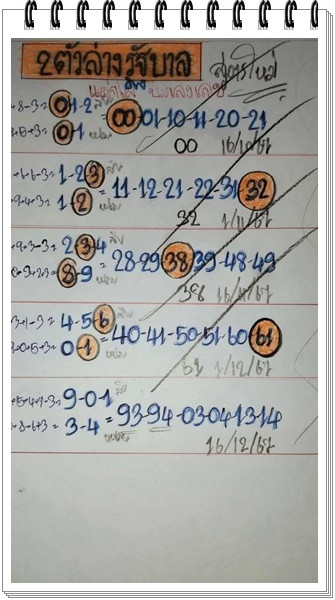 2ตัวล่างรัฐบาล สูตรใหม่
8-3= 0-1-2 สิบ
5+3= 0-1 หน่วย = 00-01-10-11-20-21
00 16/10/67
6-3= 1-2-3 สิบ
9+4+3= 1-2 หน่วย = 11-12-21-22-31-32
32 1/11/67
9+3-3= 2-3-4 สิบ
8-9 หน่วย = 28-29-38-39-48-49
38 16/11/67
3+1-3= 4-5-6 สิบ
0+5+3= 0-1 หน่วย = 40-41-50-51-60-61
61 1/12/67
9-0-1 สิบ
8-6+3= 3-4 หน่วย = 93-94-03-04-13-14
16/12/67